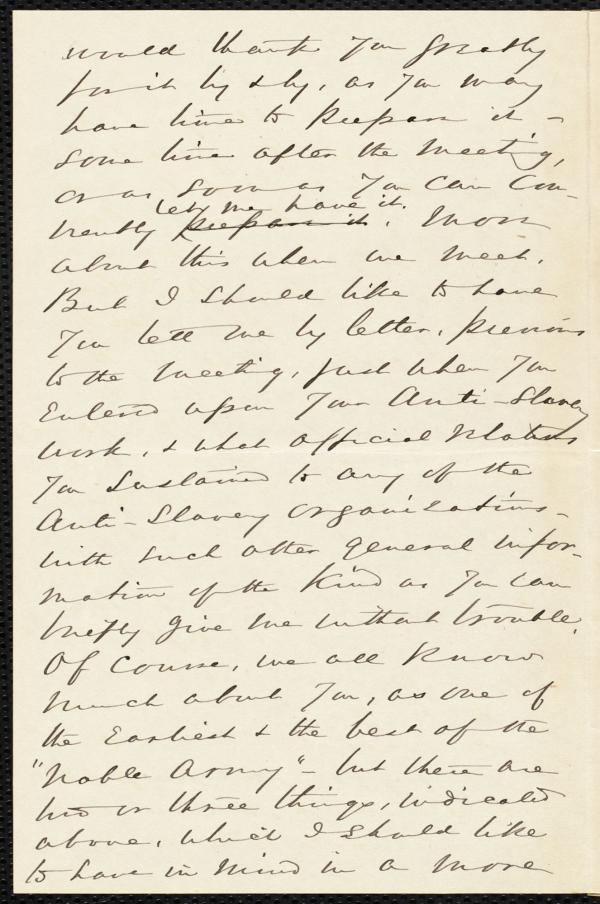 would thank you greatly
for it by & by, as you may
have time to prepare it –
some time after the meeting,
or as soon as you can con-
let me have it.
veniently prepare it. More
about this when we meet.
But I should like to have
you tell me by letter, previous
to the meeting, just when you
entered upon your Anti-Slavery
work, & what official relations
you sustained to any of the
Anti-Slavery organizations –
with such other general infor-
mation of the kind as you can
briefly give me without trouble.
Of course, we all know
much about you, as one of
the earliest & the best of the
"Noble Army" – but there are
two or three things, indicated
above, which I should like
to have in mind in a more